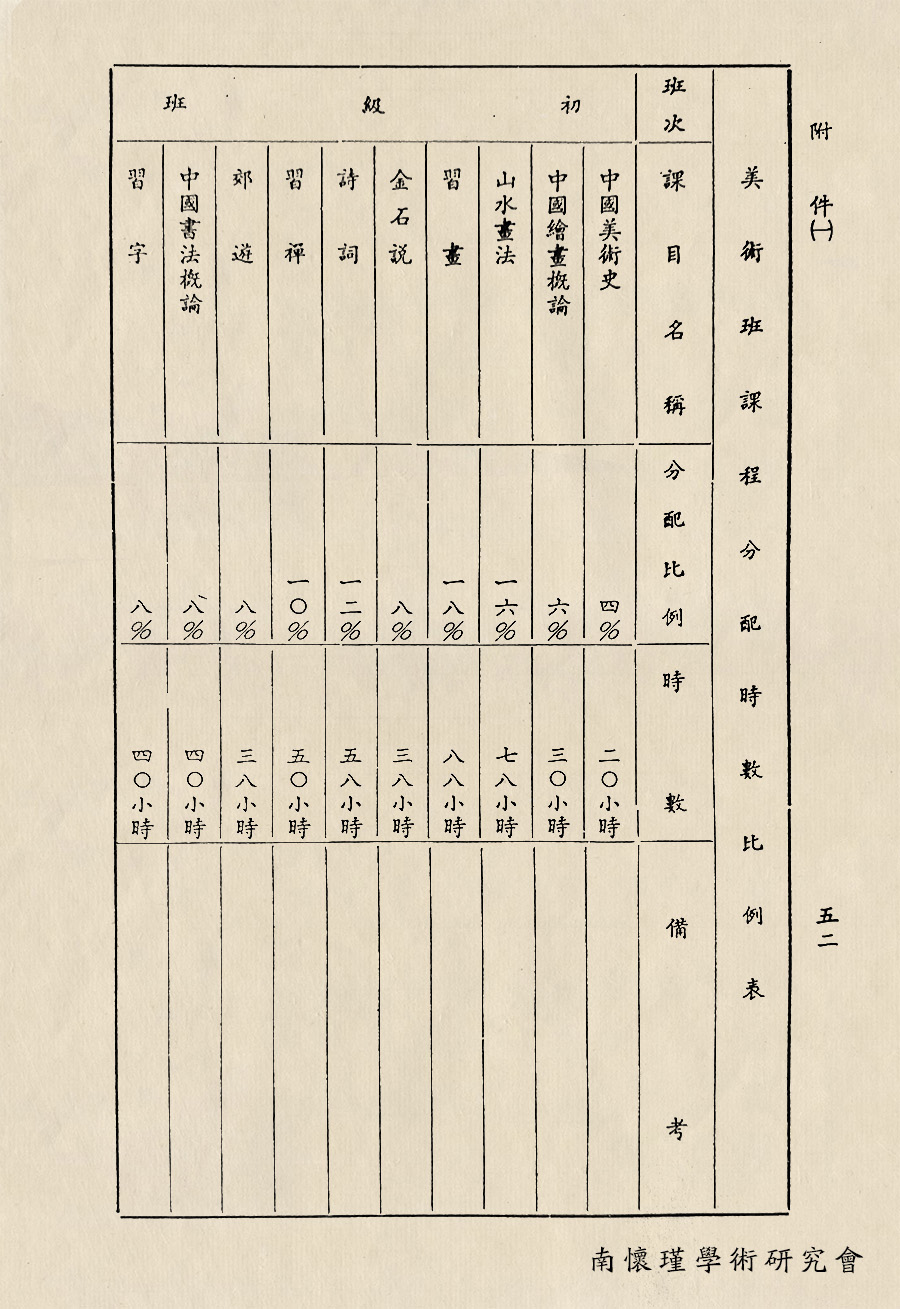 附件㈠
五二
美術班課程分配時數比例表
班次
課目名稱
分配比例
時數
備考
初級班
中國美術史
四%
二〇小時
中國繪畫概論
六%
三〇小時
山水畫法
一六%
七八小時
習畫
一八%
八八小時
金石說
八%
三八小時
詩詞
一二%
五八小時
習禪
一〇%
五〇小時
郊遊
八%
三八小時
中國書法概論
八%
四〇小時
習字
八%
四〇小時
南懷瑾學術研究會